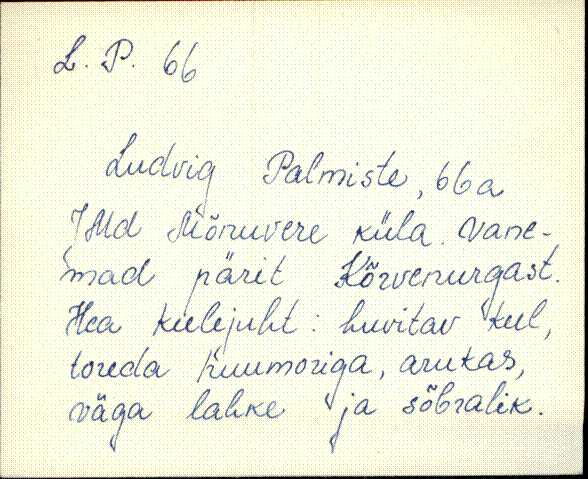 L. P. 66
Ludvig Palmiste, 66a
JMd Mõnuvere küla. Vane-
mad pärit Kõrvenurgast.
Hea keelejuht: huvitav keel,
toreda huumoriga, arukas,
väga lahke ja sõbralik.